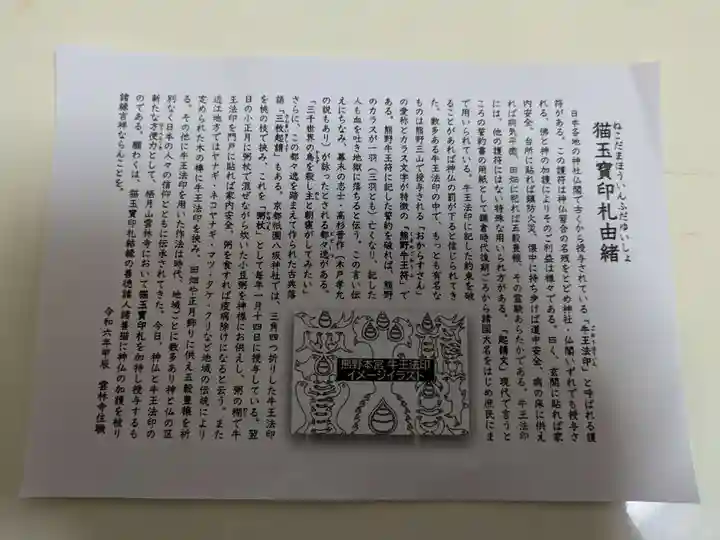 猫玉寶印札由緒
ねこだまほういんふだゆいしょ
日本各地の神社仏閣で古くから授与されている「牛王法印」と呼ばれる護
符がある。この護符は神仏習合の名残をとどめ神社・仏閣いずれでも授与さ
れる。佛と神の加護によりそのご利益は様々である。曰く、玄関に貼れば家
内安全、台所に貼れば鎮防火災、懐中に持ち歩けば道中安全、病の床に供え
れば病気平癒、田畑に祀れば五穀豊穣、その霊験あらたかである。牛王法印
には、他の護符にはない特殊な用いられ方がある。「起請文」現代で言うと
ころの誓約書の用紙として鎌倉時代後期ごろから諸国大名をはじめ庶民にま
で用いられている。牛王法印に記した約束を破
ることがあれば神仏の罰が下ると信じられてき
た。数多ある牛王法印の中で、もっとも有名な
ものは熊野三山で授与される「おからすさん」
の愛称とカラス文字が特徴の「熊野牛王符」で
ある。熊野牛王符に記した誓約を破れば、熊野
のカラスが一羽（三羽とも）亡くなり、記した
人も血を吐き地獄に落ちると伝う。この言い伝
えにちなみ、幕末の志士・高杉晋作（木戸孝允
の説もあり）が詠ったとされる都々逸がある。
「三千世界の烏を殺し主と朝寝がしてみたい」
さらに、この都々逸を踏まえて作られた古典落
語「三枚起請」もある。京都祇園八坂神社では、三角四つ折りした牛王法印
を桃の枝で挟み、これを「粥杖」として毎年一月十四日に授与している。翌
日の小正月に粥杖で混ぜながら炊いた小豆粥を神様にお供えし、粥の棚で牛
王法印を門戸に貼れば家内安全、粥を食すれば疫病除けになると云う。また
近江地方ではヤナギ・ネコヤナギ・マツ・タケ・クリなど地域の伝統により
定められた木の棒に牛王法印を挟み、田畑や正月飾りに供え五穀豊穣を祈
る。その他に牛王法印を用いた作法は時代、地域ごとに数多あり神と仏の区
別なく日本の人々の信仰とともに伝承されてきた。今日、神仏と牛王法印の
新たな方便力として、栖月山雲林寺において猫玉寶印札を加持し授与するも
のである。願わくは、猫玉寶印札結縁の善徳諸人諸善猫に神仏の加護を被り
諸縁吉祥ならんことを。
令和六年甲辰　雲林寺住職
熊野本宮 牛王法印
イメージイラスト